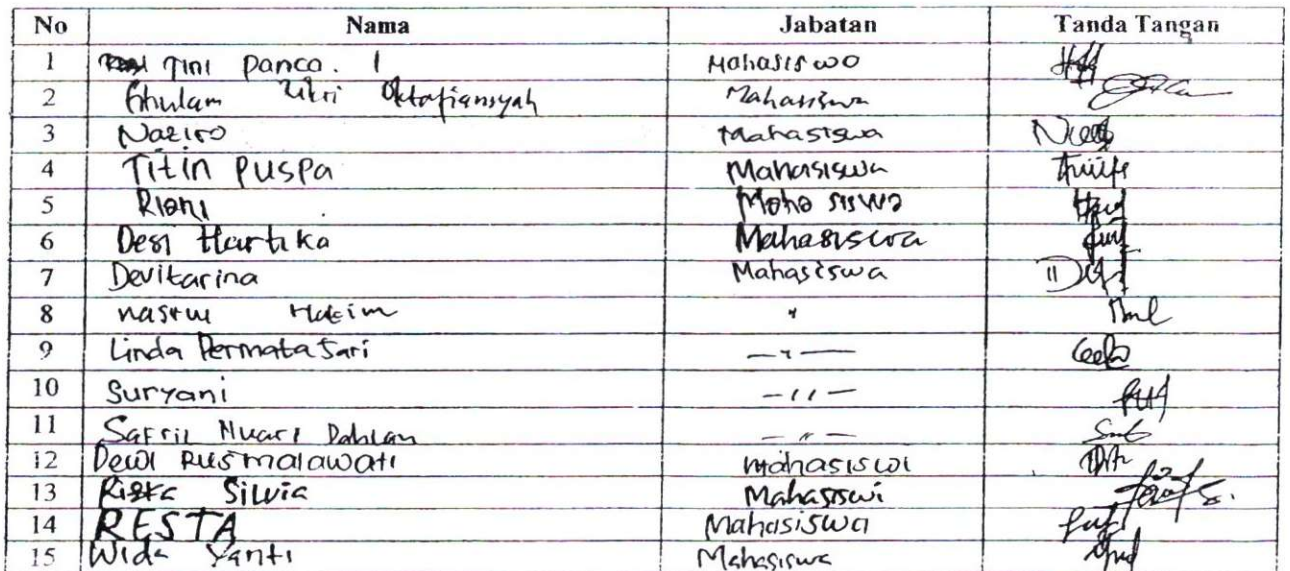 No Nama Jabatan Tanda Tangan
1 Tini Panca. I Mahasiswa
2 Ghulam Oktafiansyah Mahasiswa
3 Naziro Mahasiswa
4 Titin Puspa Mahasiswa
5 Riani Mahasiswa
6 Desi Hartika Mahasiswa
7 Devitarina Mahasiswa
8 Hakim "
9 Linda Permata Sari — " —
10 Suryani — " —
11 Safril Dahlan — " —
12 Dewi Rusmalawati Mahasiswi
13 Silvia Mahasiswi
14 RESTA Mahasiswa
15 Wida Yanti Mahasiswa